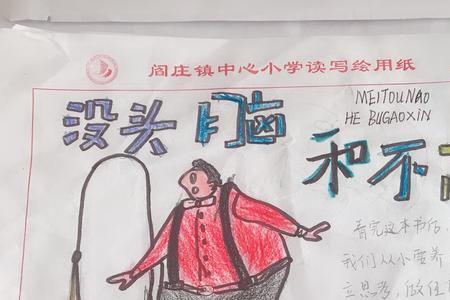 阎庄镇中心小学读写绘用纸
没头脑
MEITOUNAO
HE BUGAOXIN
和不
看完这本书后,
我们从小要养
立思考,做任